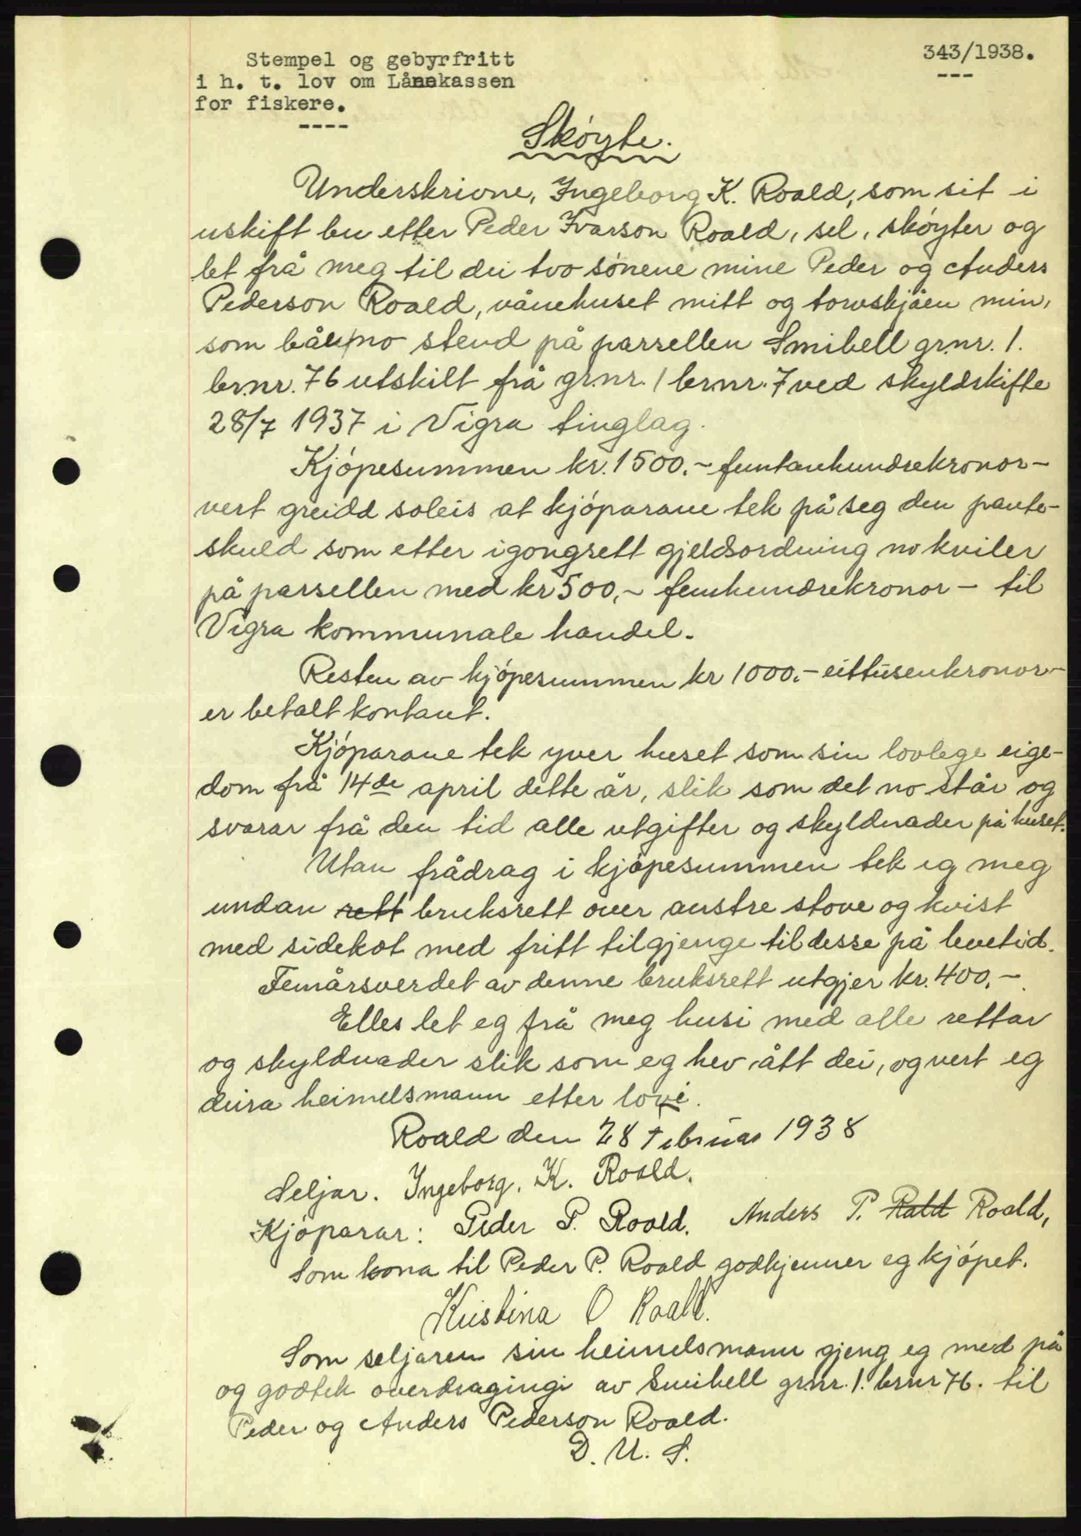 343/1938.
---
Stempel og gebyrfritt
i h. t. lov om Lånekassen
for fiskere.
----
Skøyte.
Underskrivne, Ingeborg K. Roald, som sit i
uskift bu etter Peder Ivarson Roald, sel, skøyter og
let frå meg til dei tvo sønene mine Peder og Anders
Pederson Roald, vånehuset mitt og torvskjåen min,
som båe no stend på parsellen Smibell grnr. 1.
brnr. 76 utskilt frå grnr. 1 brnr. 7 ved skyldskifte
28/7 1937 i Vigra tinglag.
Kjøpesummen kr. 1500.- femtanhundrekronor-
vert greidd soleis at kjøparane tek på seg den pante-
skuld som etter igongsett gjeldsordning no kviler
på parsellen med kr 500,- femhundrekronor - til
Vigra kommunale handel.
Resten av kjøpesummen kr 1000.- eittusenkronor-
er betalt kontant.
Kjøparane tek yver huset som sin lovlege eige-
dom frå 14de april dette år, slik som det no står og
svarar frå den tid alle utgifter og skyldnader på huset.
Utan frådrag i kjøpesummen tek eg meg
undan rett bruksrett over austre stove og kvist
med sidekot med fritt tilgjenge til desse på levetid.
Femårsverdet av denne bruksrett utgjer kr. 400.-.
Elles let eg frå meg husi med alle rettar
og skyldnader slik som eg hev ått dei, og vert eg
deira heimelsmann etter lovi.
Roald den 28 februar 1938
Seljar. Ingeborg. K. Roald.
Kjøparar: Peder P. Roald. Anders P. Rald Roald,
Som kona til Peder P. Roald godkjenner eg kjøpet.
Kristina O Roald.
Som seljaren sin heimelsmann gjeng eg med på
og godtek overdragingi av Smibell grnr. 1. brnr 76. til
Peder og Anders Pederson Roald.
D. U. S.